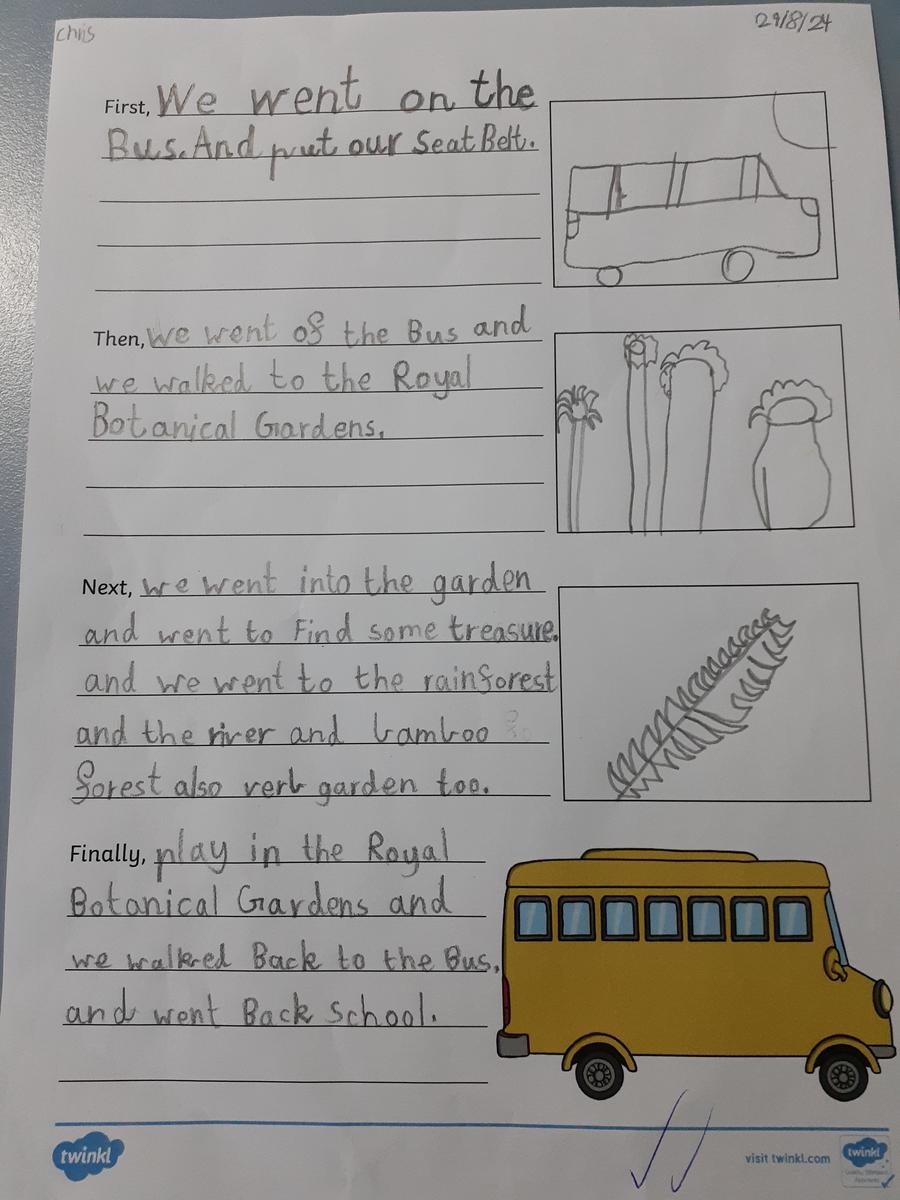 chris
29/8/24
First, We went on the
Bus. And put our Seat Belt.
Then, we went of the Bus and
we walked to the Royal
Botanical Gardens.
Next, we went into the garden
and went to Find some treasure.
and we went to the rainforest
and the river and bamboo
forest also verb garden too.
Finally, play in the Royal
Botanical Gardens and
we walked Back to the Bus,
and went Back School.
twinkl
visit twinkl.com
twinkl